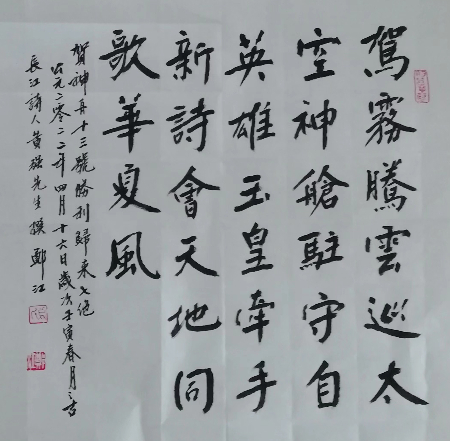 駕霧騰雲巡太
空神艙駐守自
英雄玉皇牽手
新詩會天地同
歌華夏風
賀神舟十三號勝利歸來七绝
公元二零二二年四月十六日歲次壬寅春月之吉
長江詩人黄强先生撰 鄭江